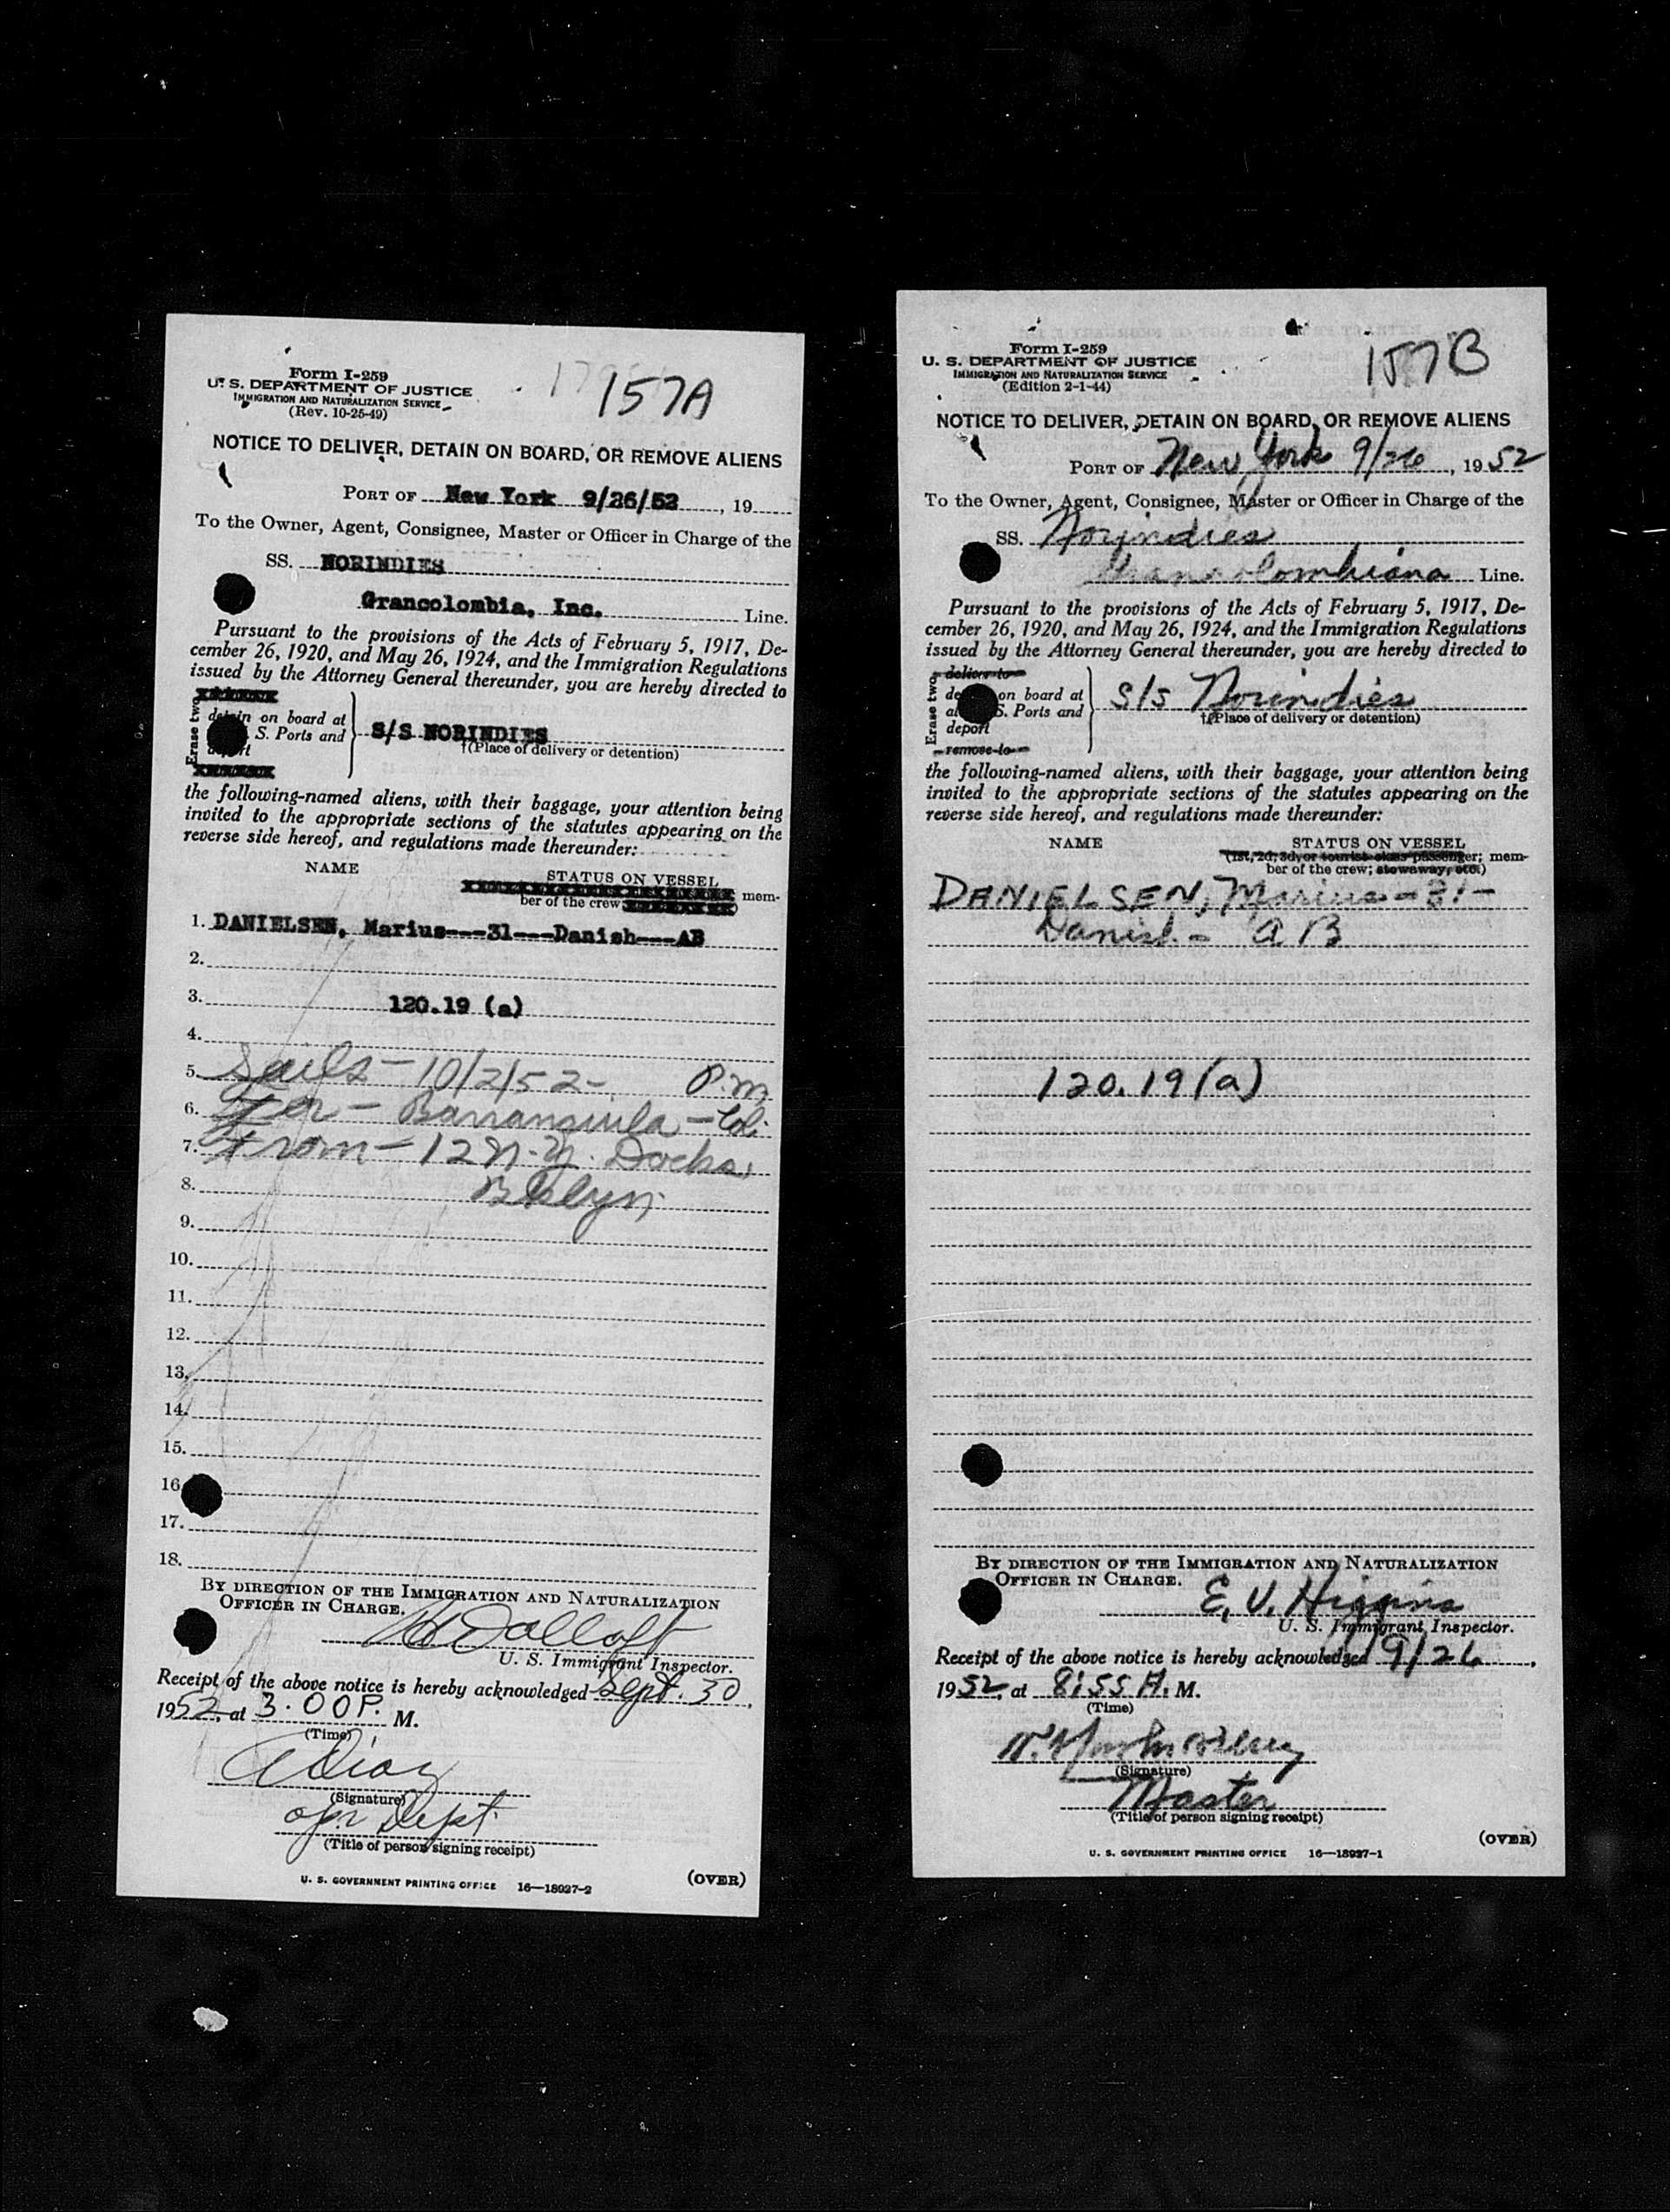 Form I-259
U. S. DEPARTMENT OF JUSTICE
IMMIGRATION AND NATURALIZATION SERVICE
(Rev. 10-25-49)
157A
NOTICE TO DELIVER, DETAIN ON BOARD, OR REMOVE ALIENS
PORT OF New York 9/26/52, 19
To the Owner, Agent, Consignee, Master or Officer in Charge of the
SS. NORINDIES
Grancolombia, Inc. Line.
Pursuant to the provisions of the Acts of February 5, 1917, De-
cember 26, 1920, and May 26, 1924, and the Immigration Regulations
issued by the Attorney General thereunder, you are hereby directed to
Erase two
detain on board at
S. Ports and
S/S NORINDIES
†(Place of delivery or detention)
the following-named aliens, with their baggage, your attention being
invited to the appropriate sections of the statutes appearing on the
reverse side hereof, and regulations made thereunder:
NAME
STATUS ON VESSEL
mem-
ber of the crew
1. DANIELSEN, Marius---31---Danish---AB
2.
3. 120.19 (a)
4.
5. Sails - 10/2/52 - P.m
6. For - Barranquila - Col.
7. From - 12 N.Y. Docks,
8. Bklyn
9.
10.
11.
12.
13.
14.
15.
16
17.
18.
BY DIRECTION OF THE IMMIGRATION AND NATURALIZATION
OFFICER IN CHARGE.
U. S. Immigrant Inspector.
Receipt of the above notice is hereby acknowledged Sept. 30,
1952, at 3.00 P. M.
(Time)
A Diaz
(Signature)
opr Dept
(Title of person signing receipt)
U. S. GOVERNMENT PRINTING OFFICE 16—18927-2
(OVER)
Form I-259
U. S. DEPARTMENT OF JUSTICE
IMMIGRATION AND NATURALIZATION SERVICE
(Edition 2-1-44)
157B
NOTICE TO DELIVER, DETAIN ON BOARD, OR REMOVE ALIENS
PORT OF New York 9/26, 1952
To the Owner, Agent, Consignee, Master or Officer in Charge of the
SS. Norindies
Grancolombiana Line.
Pursuant to the provisions of the Acts of February 5, 1917, De-
cember 26, 1920, and May 26, 1924, and the Immigration Regulations
issued by the Attorney General thereunder, you are hereby directed to
Erase two
deliver to
on board at
S. Ports and
deport
remove to
S/S Norindies
†(Place of delivery or detention)
the following-named aliens, with their baggage, your attention being
invited to the appropriate sections of the statutes appearing on the
reverse side hereof, and regulations made thereunder:
NAME
STATUS ON VESSEL
(1st, 2d, 3d, or tourist class passenger; mem-
ber of the crew; stowaway, etc.)
DANIELSEN, Marius - 31 -
Danish - AB
120.19(a)
BY DIRECTION OF THE IMMIGRATION AND NATURALIZATION
OFFICER IN CHARGE.
E. V. Higgins
U. S. Immigrant Inspector.
Receipt of the above notice is hereby acknowledged 9/26,
1952, at 8:55 A. M.
(Time)
(Signature)
Master
(Title of person signing receipt)
(OVER)
U. S. GOVERNMENT PRINTING OFFICE 16—18927-1